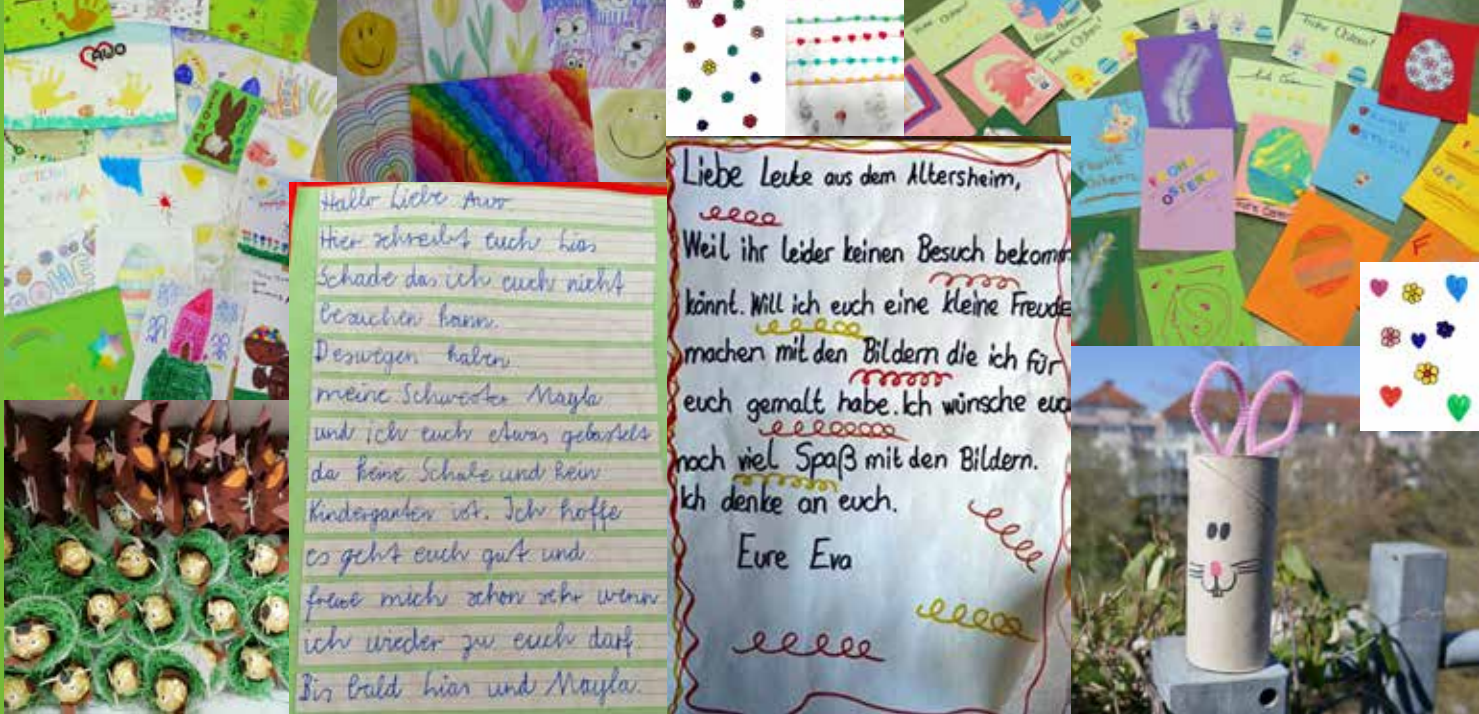 AWO
OSTERN
Frohe Ostern!
Frohe Ostern!
Frohe Ostern!
FROHE
OSTERN
Frohe
Ostern
FROHE
OSTERN
Hallo Liebe Awo.
Hier schreibt euch Lias
Schade das ich euch nicht
besuchen kann.
Deswegen haben
meine Schwester Mayla
und ich euch etwas gebastelt
da keine Schule und kein
Kindergarten ist. Ich hoffe
es geht euch gut und
freue mich schon sehr wenn
ich wieder zu euch darf.
Bis bald Lias und Mayla.
Liebe Leute aus dem Altersheim,
Weil ihr leider keinen Besuch bekomm
könnt. Will ich euch eine kleine Freude
machen mit den Bildern die ich für
euch gemalt habe. Ich wünsche euc
noch viel Spaß mit den Bildern.
Ich denke an euch.
Eure Eva